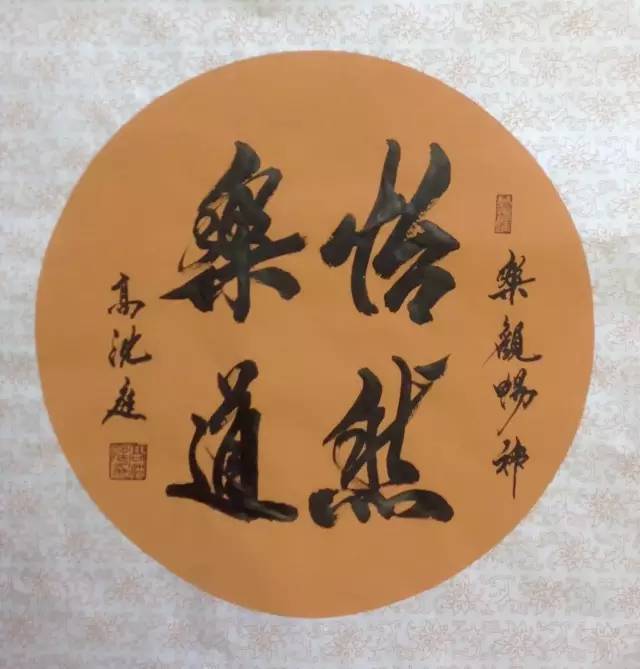 樂觀暢神
怡然
樂道
高沈庭